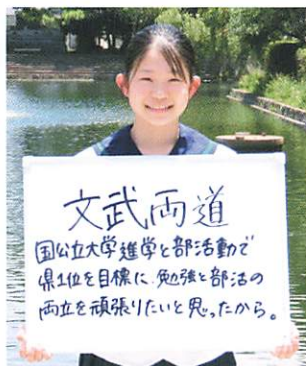 文武両道
国公立大学進学と部活動で
県1位を目標に、勉強と部活の
両立を頑張りたいと思ったから。